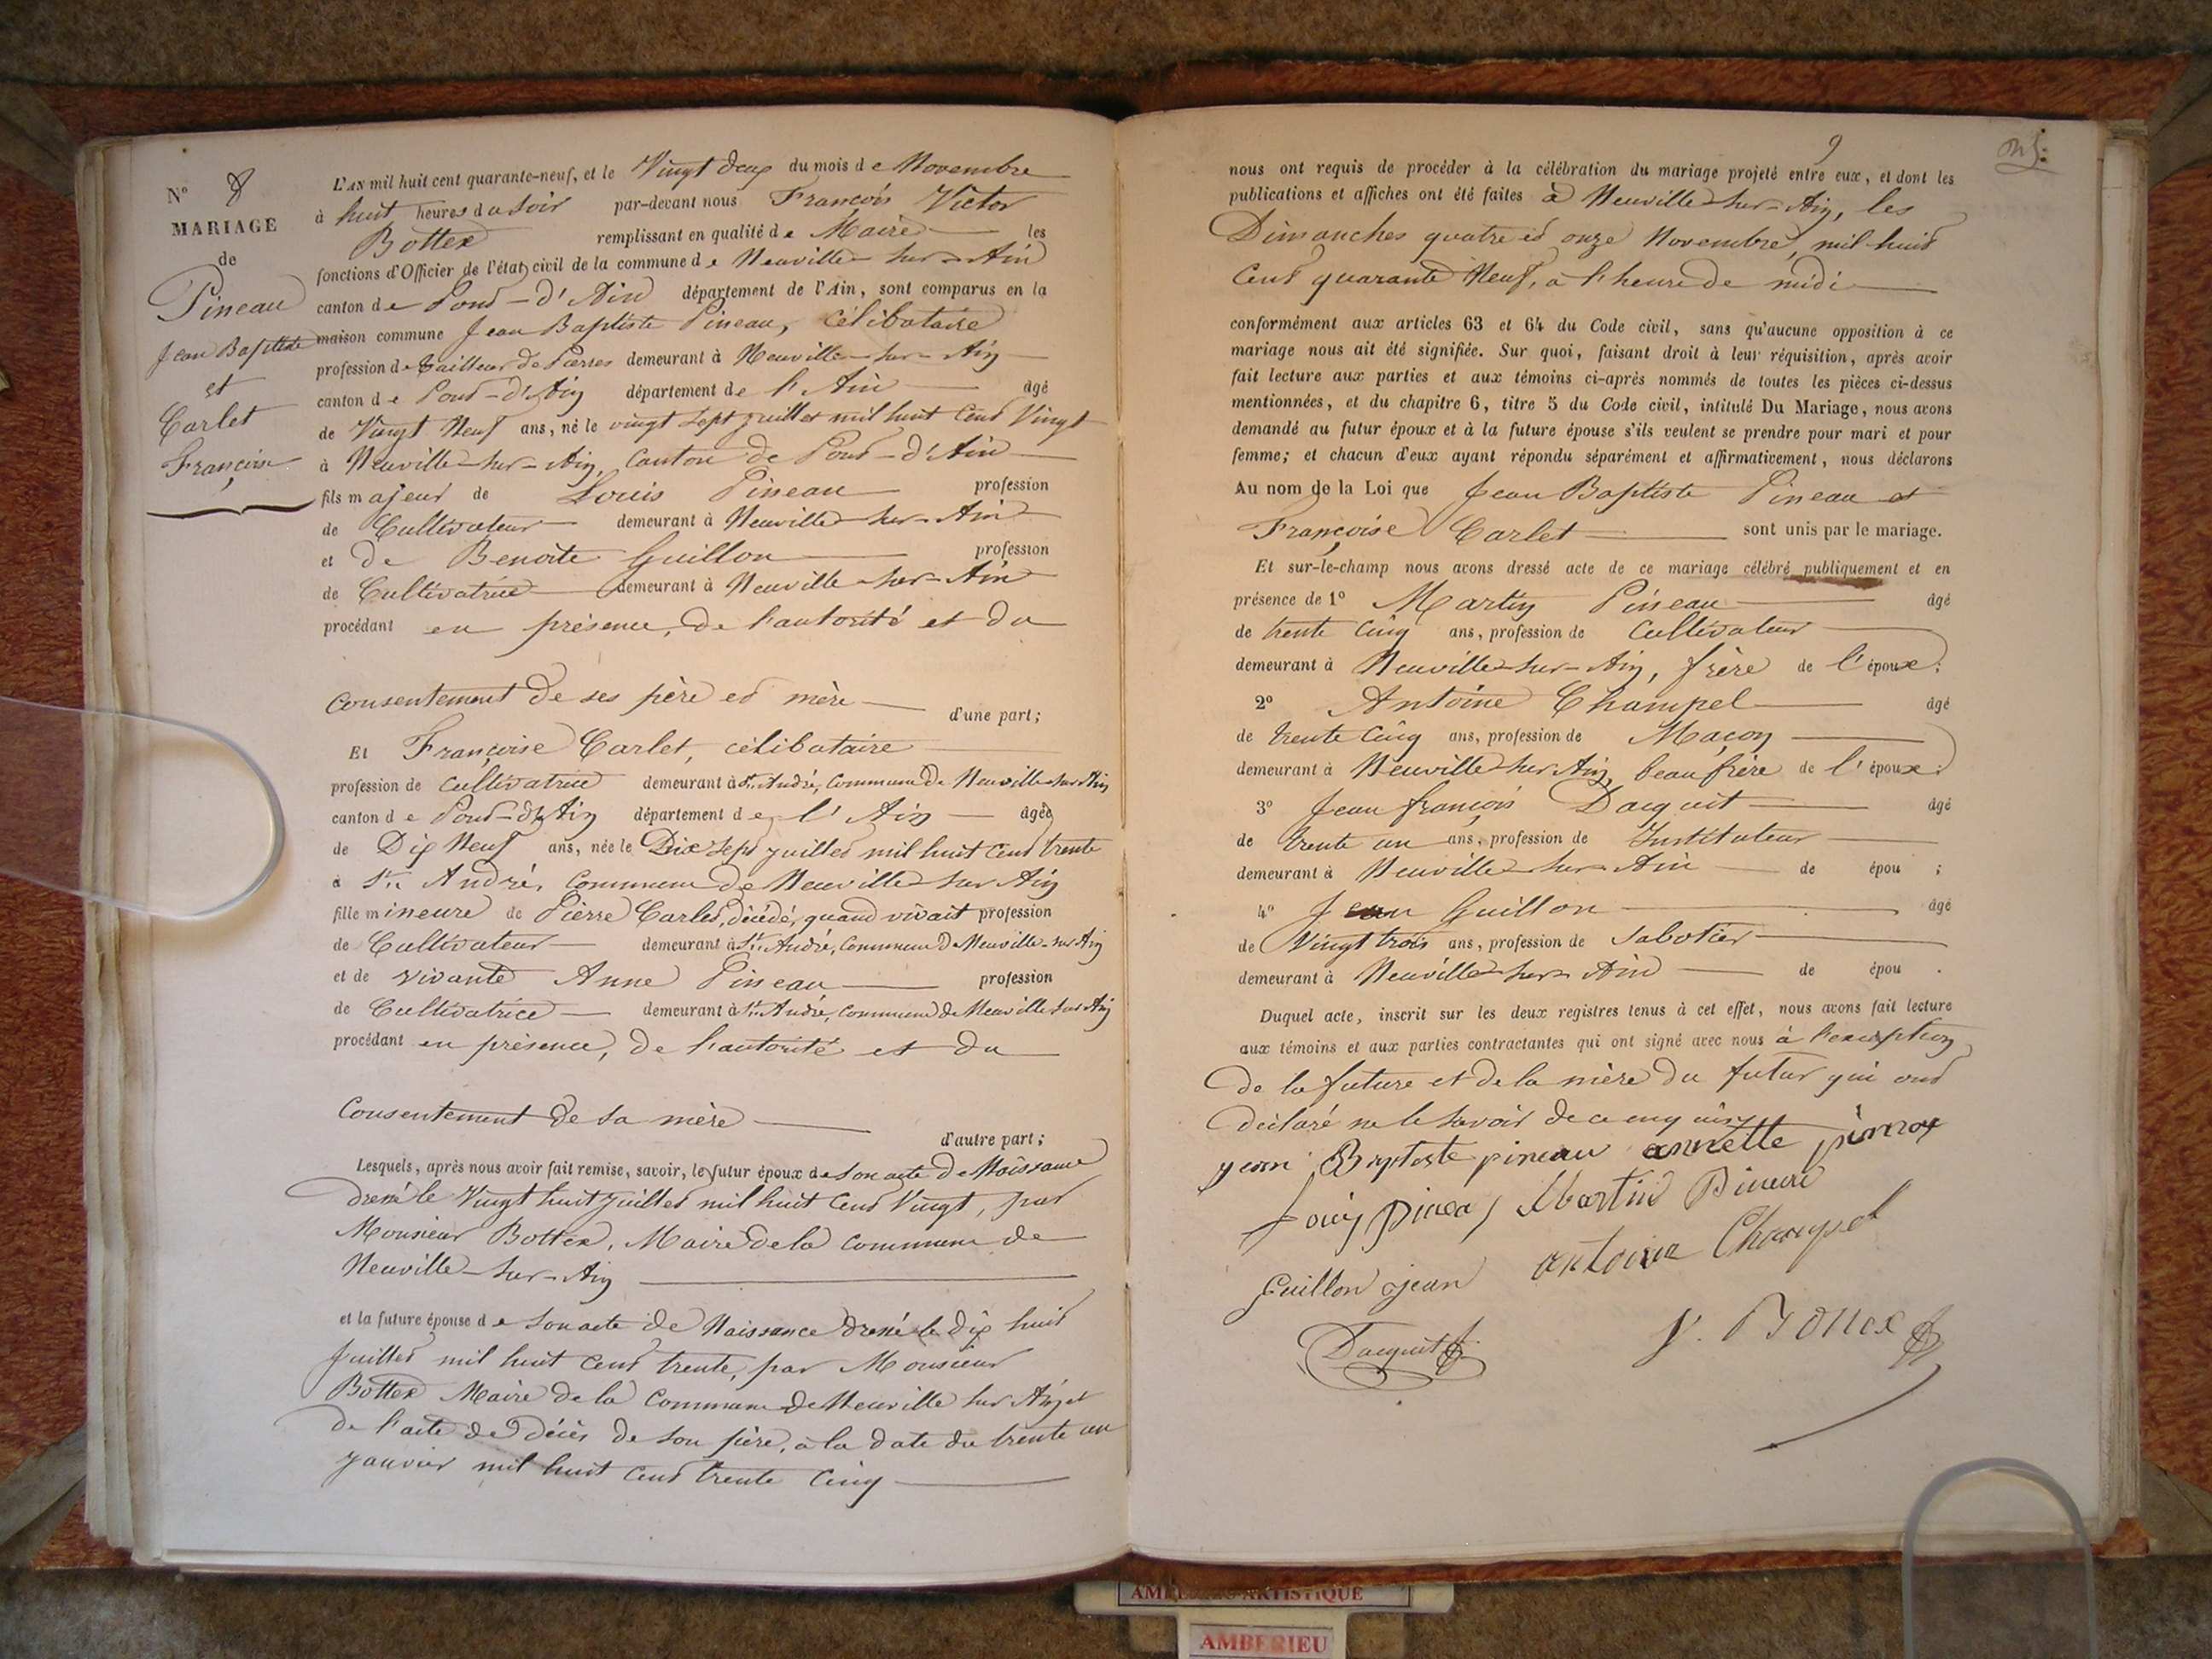 N.º 8
MARIAGE
de
Pineau
Jean Baptiste
et
Carlet
Françoise
L'AN mil huit cent quarante-neuf, et le Vingt deux du mois de Novembre
à huit heures du Soir par-devant nous François Victor
Bottex remplissant en qualité de Maire les
fonctions d'Officier de l'état civil de la commune de Neuville-sur-Ain
canton de Pont-d'Ain département de l'Ain, sont comparus en la
maison commune Jean Baptiste Pineau, Célibataire
profession de tailleur de Pierres demeurant à Neuville-sur-Ain
canton de Pont-d'Ain département de l'Ain âgé
de Vingt Neuf ans, né le vingt sept juillet mil huit Cent Vingt
à Neuville-sur-Ain, Canton de Pont-d'Ain
fils majeur de Louis Pineau profession
de Cultivateur demeurant à Neuville-sur-Ain
et de Benoite Guillon profession
de Cultivatrice demeurant à Neuville-sur-Ain
procédant en présence, de l'autorité et du
Consentement de ses père et mère d'une part;
ET Françoise Carlet, célibataire
profession de cultivatrice demeurant à St. André, Commune de Neuville sur Ain
canton de Pont-d'Ain département de l'Ain âgée
de Dix Neuf ans, née le Dix Sept juillet mil huit Cent trente
à St. André, Commune de Neuville sur Ain
fille mineure de Pierre Carlet, décédé, quand vivait profession
de Cultivateur demeurant à St. André, Commune de Neuville-sur Ain
et de vivante Anne Pineau profession
de Cultivatrice demeurant à St. André, Commune de Neuville sur Ain
procédant en présence, de l'autorité et du
Consentement de sa mère
d'autre part;
Lesquels, après nous avoir fait remise, savoir, le futur époux de son acte de Naissance
dressé le Vingt huit juillet mil huit Cent Vingt, par
Monsieur Bottex, Maire de la Commune de
Neuville-sur-Ain
et la future épouse de son acte de Naissance dressé le dix huit
Juillet mil huit Cent trente, par Monsieur
Bottex Maire de la Commune de Neuville sur Ain, et
de l'acte de décès de son père, à la date du trente un
janvier mil huit Cent trente Cinq
9
nous ont requis de procéder à la célébration du mariage projeté entre eux, et dont les
publications et affiches ont été faites à Neuville-sur-Ain, les
Dimanches quatre et onze Novembre, mil huit
Cent quarante Neuf, à l'heure de midi
conformément aux articles 63 et 64 du Code civil, sans qu'aucune opposition à ce
mariage nous ait été signifiée. Sur quoi, faisant droit à leur réquisition, après avoir
fait lecture aux parties et aux témoins ci-après nommés de toutes les pièces ci-dessus
mentionnées, et du chapitre 6, titre 5 du Code civil, intitulé Du Mariage, nous avons
demandé au futur époux et à la future épouse s'ils veulent se prendre pour mari et pour
femme; et chacun d'eux ayant répondu séparément et affirmativement, nous déclarons
Au nom de la Loi que Jean Baptiste Pineau et
Françoise Carlet sont unis par le mariage.
Et sur-le-champ nous avons dressé acte de ce mariage célébré publiquement et en
présence de 1º Martin Pineau âgé
de trente Cinq ans, profession de Cultivateur
demeurant à Neuville-sur-Ain, frère de l'époux;
2º Antoine Champel âgé
de trente Cinq ans, profession de Maçon
demeurant à Neuville sur Ain, beau frère de l'époux;
3º Jean françois Dacquit âgé
de trente un ans, profession de Instituteur
demeurant à Neuville-sur-Ain de épou ;
4º Jean Guillon âgé
de Vingt trois ans, profession de Sabotier
demeurant à Neuville-sur-Ain de épou .
Duquel acte, inscrit sur les deux registres tenus à cet effet, nous avons fait lecture
aux témoins et aux parties contractantes qui ont signé avec nous à l'exception
de la future et de la mère du futur qui ont
déclaré ne le savoir de ce enquises
jean Baptiste pineau annette
Louis pineau Martin Pineau
Guillon jean antoine Champel
Dacquit V. Bottex
AMBERIEU